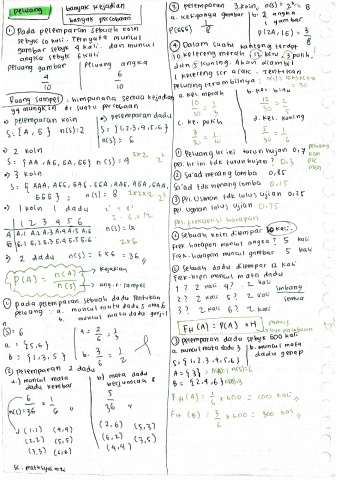 peluang
banyak kejadian
banyak percobaan
1. Pada pelemparan sebuah koin
sebyk 10 kali. Ternyata muncul
gambar sebyk 4 kali. dan muncul
angka sebyk 6 kali
Peluang gambar
peluang angka
4/10
6/10
Ruang Sampel : himpunan semua kejadian
yg mungkin dr suatu percobaan
→ pelemparan koin
S = {A, G} n(s) = 2
→ pelemparan dadu
S = {1,2,3,4,5,6}
n(s) = 6
→ 2 koin
S = {AA, AG, GA, GG} n(s) = 4 2x2
→ 3 koin
GGG } n(s) = 8 2x2x2
→ 1 koin 1 dadu
1 2 3 4 5 6
A A,1 A,2 A,3 A,4 A,5 A,6
G G,1 G,2 G,3 G,4 G,5 G,6
n(s) = 12
2x6
→ 2 dadu n(s) = 6x6 = 36
P(A) = n(A) / n(s)
→ kejadian
→ ang. r. sampel
1. pada pelemparan sebuah dadu Tentukan
peluang a. muncul mata dadu 5 atau 6
b. muncul mata dadu ganjil
n(S) = 6
a = {5,6}
B = {1,3,5}
a = 2/6 = 1/3
b. 3/6 = 1/2
2. pelemparan 2 dadu
a.) muncul mata
dadu kembar
b) mata dadu
berjumlah 8
6/36 = 1/6
n(s) = 36
5/36
(1,1) (4,4)
(2,2) (5,5)
(3,3) (6,6)
(2,6) (5,3)
(6,2) (3,5)
(4,4)
3. pelemparan 3 koin, n(s) 2³ = 8
a. ketiganya gambar
b. 2 angka
gambar
P(GGG) 1/8
P(2A, 1G) : 3/8
4. Dalam suatu kantong terdpt
10 kelereng merah, 12 biru, 3 putih,
dan 5 kuning. Akan diambil
1 kelereng scr acak. Tentukan
peluang terambilnya :
a. kel merah
b. kel. biru
10/30 = 1/3
12/30 = 2/5
c. kel. putih
d. kel. kuning
3/30 = 1/10
5/30 = 1/6
1. Peluang hr ini turun hujan 0,7
pel. hr ini tdk turun hujan ? 0,3
2. Sa'ad menang lomba 0,85
Sa'ad tdk menang lomba 0,15
3. Pel. Usman tdk lulus ujian 0,25
pel. Usman lulus ujian 0,75
pel. frekuensi harapan
1. Sebuah koin dilempar 10 kali.
Frek. harapan muncul angka ? 5 kali
Frek. harapan muncul gambar 5 kali
2. Sebuah dadu dilempar 12 kali
Frek. hrpn muncul mata dadu
1 ? 2 kali 4 ? 2 kali
2 ? 2 kali 5 ? 2 kali
3 ? 2 kali 6 ? 2 kali
imbang
semua
FH (A) = P(A) x N
3. pelemparan dadu sebyk 600 kali
a. muncul mata dadu 3
b. muncul mata
dadu genap
S = {1,2,3,4,5,6}
A = {3}
B = {2,4,6}
FH(A) = 1/6 x 600 = 100 kali
FH (B) = 3/6 x 600 = 300 kali